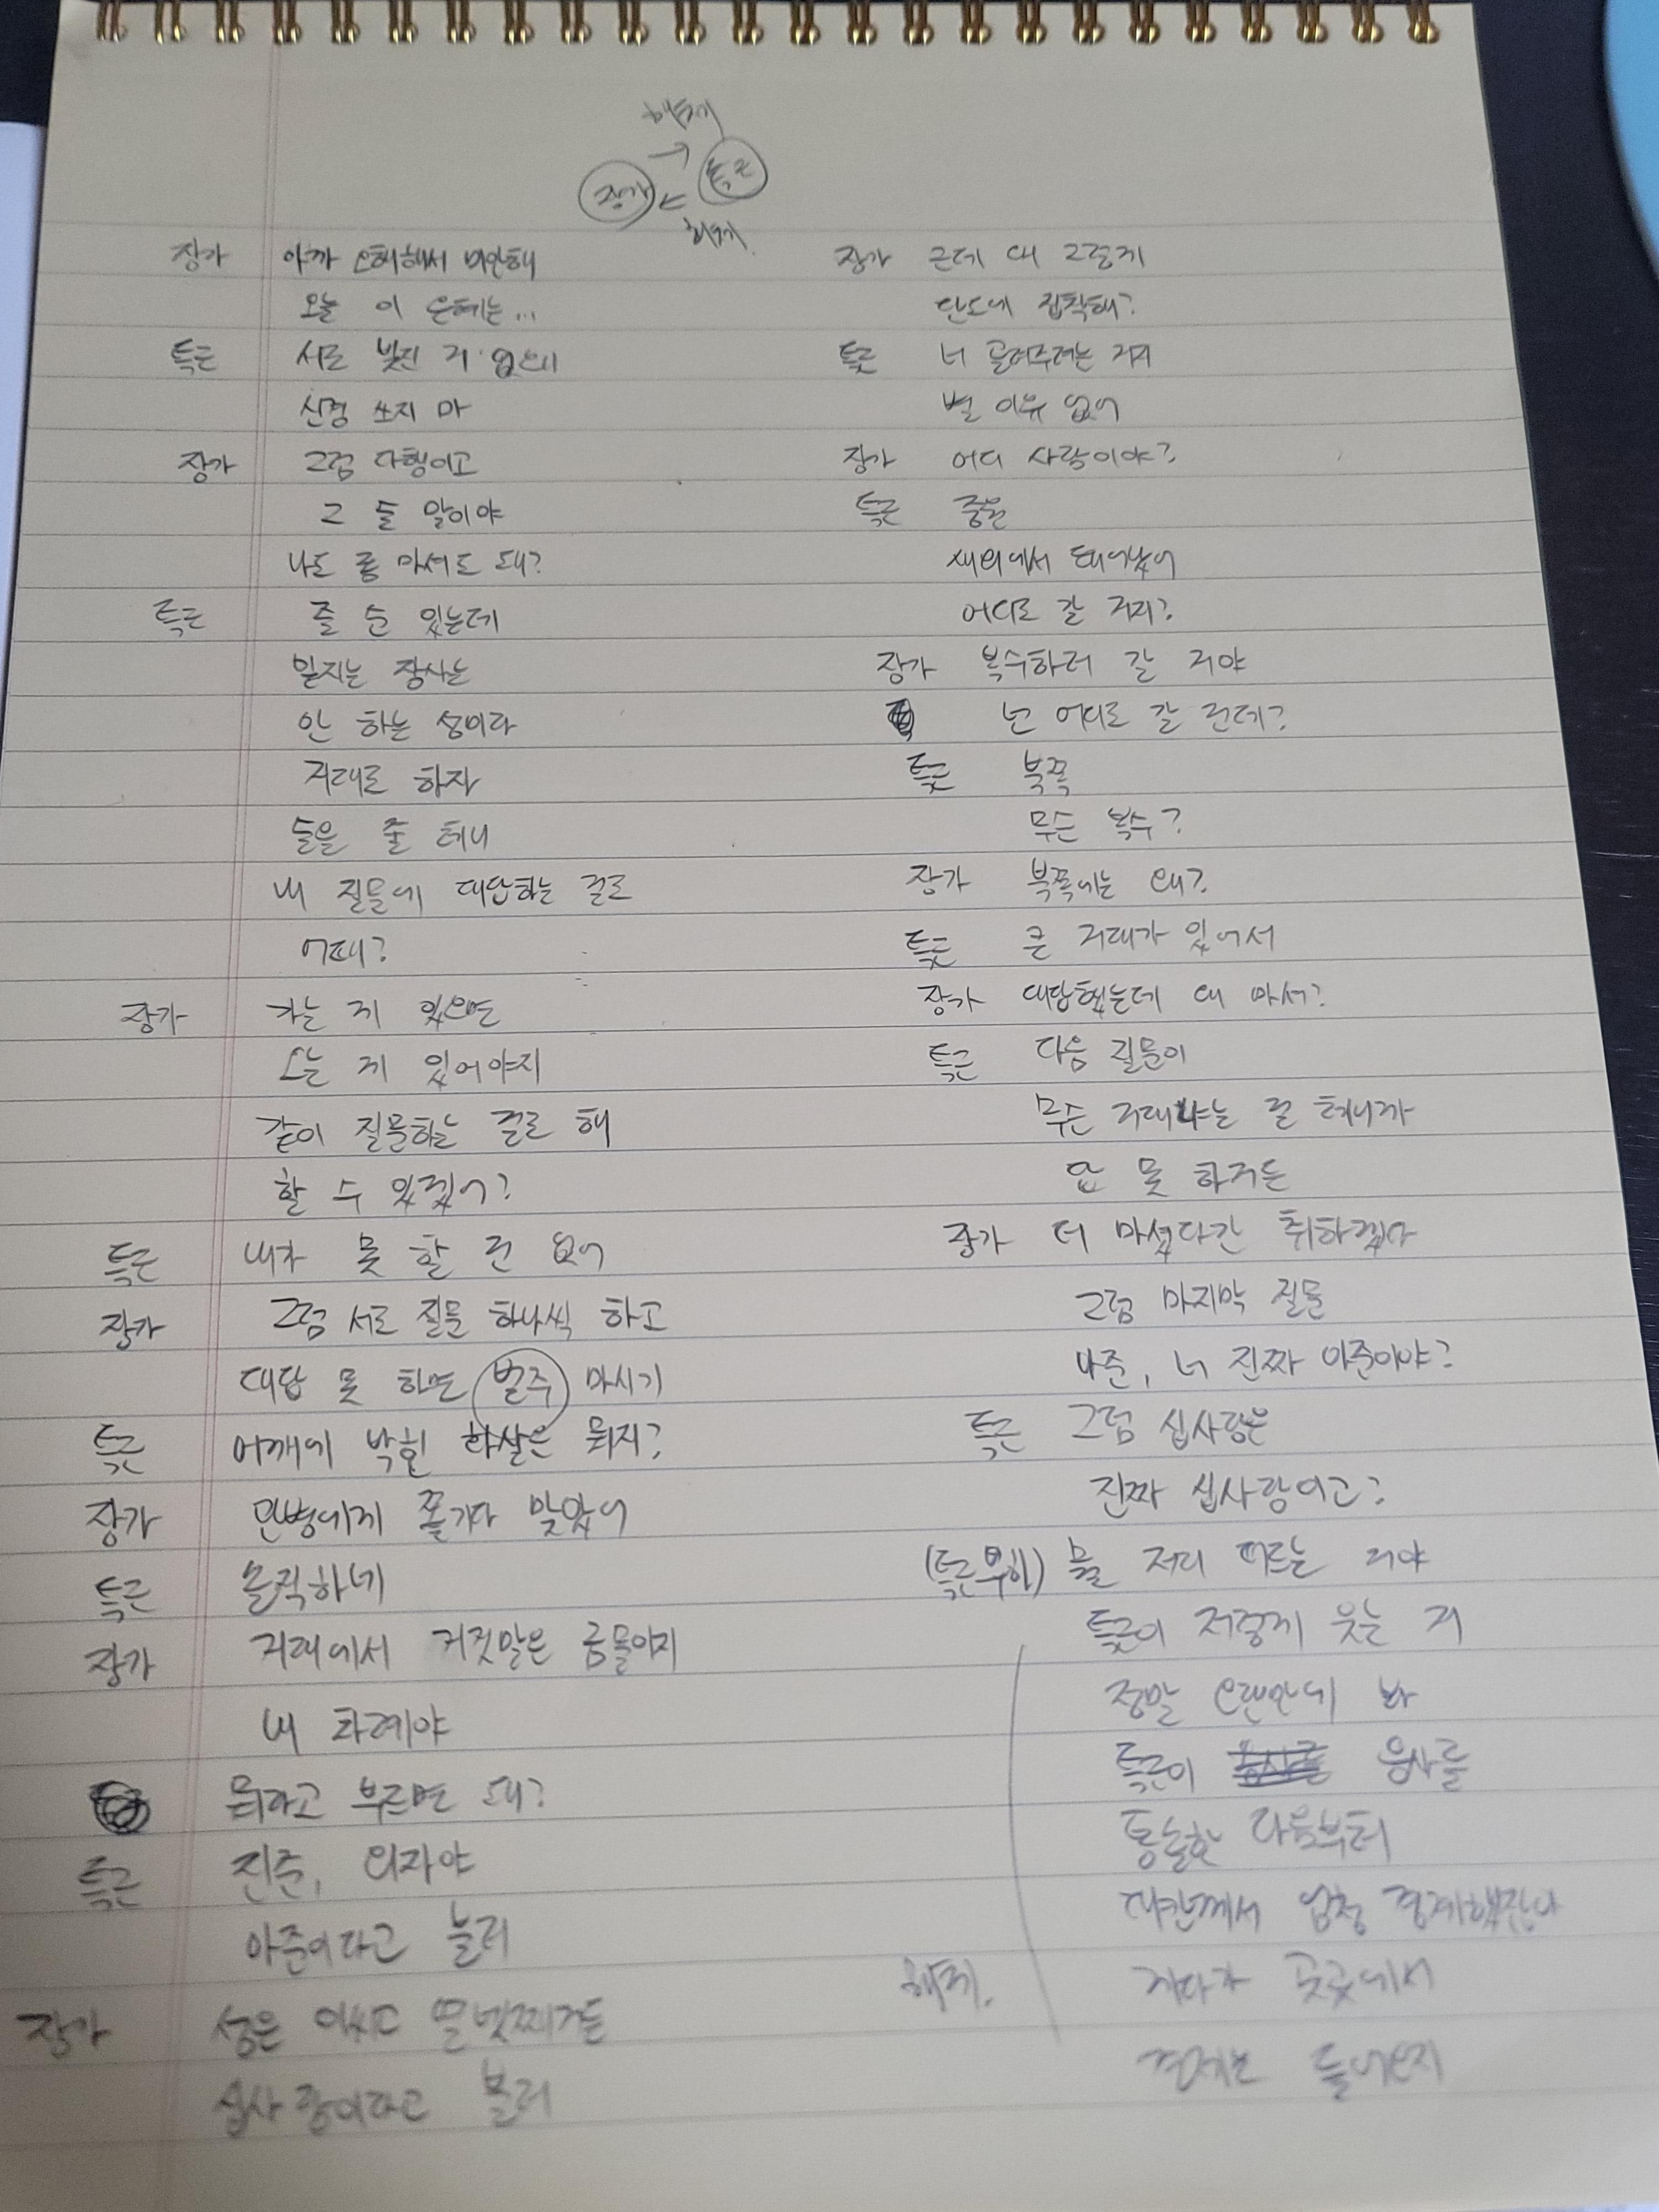 장가
특근
장가 아까 오해해서 미안해
오늘 이 은혜는...
특근 서로 빚진 거 없으니
신경 쓰지 마
장가 그럼 다행이고
그 술 말이야
나도 좀 마셔도 돼?
특근 줄 순 있는데
밑지는 장사는
안 하는 성이라
거래로 하자
술을 줄 테니
내 질문에 대답하는 걸로
어때?
장가 가는 게 있으면
오는 게 있어야지
같이 질문하는 걸로 해
할 수 있겠어?
특근 내가 못 할 건 없어
장가 그럼 서로 질문 하나씩 하고
대답 못 하면 벌주 마시기
특근 어깨에 박힌 화살은 뭐지?
장가 민병에게 쫓기다 맞았어
특근 솔직하네
장가 거래에서 거짓말은 금물이지
내 차례야
뭐라고 부르면 돼?
특근 진준, 의자야
아준이라고 불러
장가 성은 이씨고 열넷째거든
십사랑이라고 불러
장가 근데 왜 그렇게
단도에 집착해?
특근 너 골려주려는 거지
별 이유 없어
장가 어디 사람이야?
특근 중원
새외에서 태어났어
어디로 갈 거지?
장가 복수하러 갈 거야
넌 어디로 갈 건데?
특근 북쪽
무슨 복수?
장가 북쪽에는 왜?
특근 큰 거래가 있어서
장가 대답했는데 왜 마셔?
특근 다음 질문이
무슨 거래냐는 걸 테니까
답 못 하거든
장가 더 마셨다간 취하겠다
그럼 마지막 질문
아준, 너 진짜 아준이야?
특근 그럼 십사랑은
진짜 십사랑이고?
(특근 부하) 뭘 저리 떠드는 거야
특근이 저렇게 웃는 거
정말 오랜만에 봐
특근이 응사를
통솔한 다음부터
대칸께서 엄청 경계했잖아
게다가 곳곳에서
견제는 들어오지